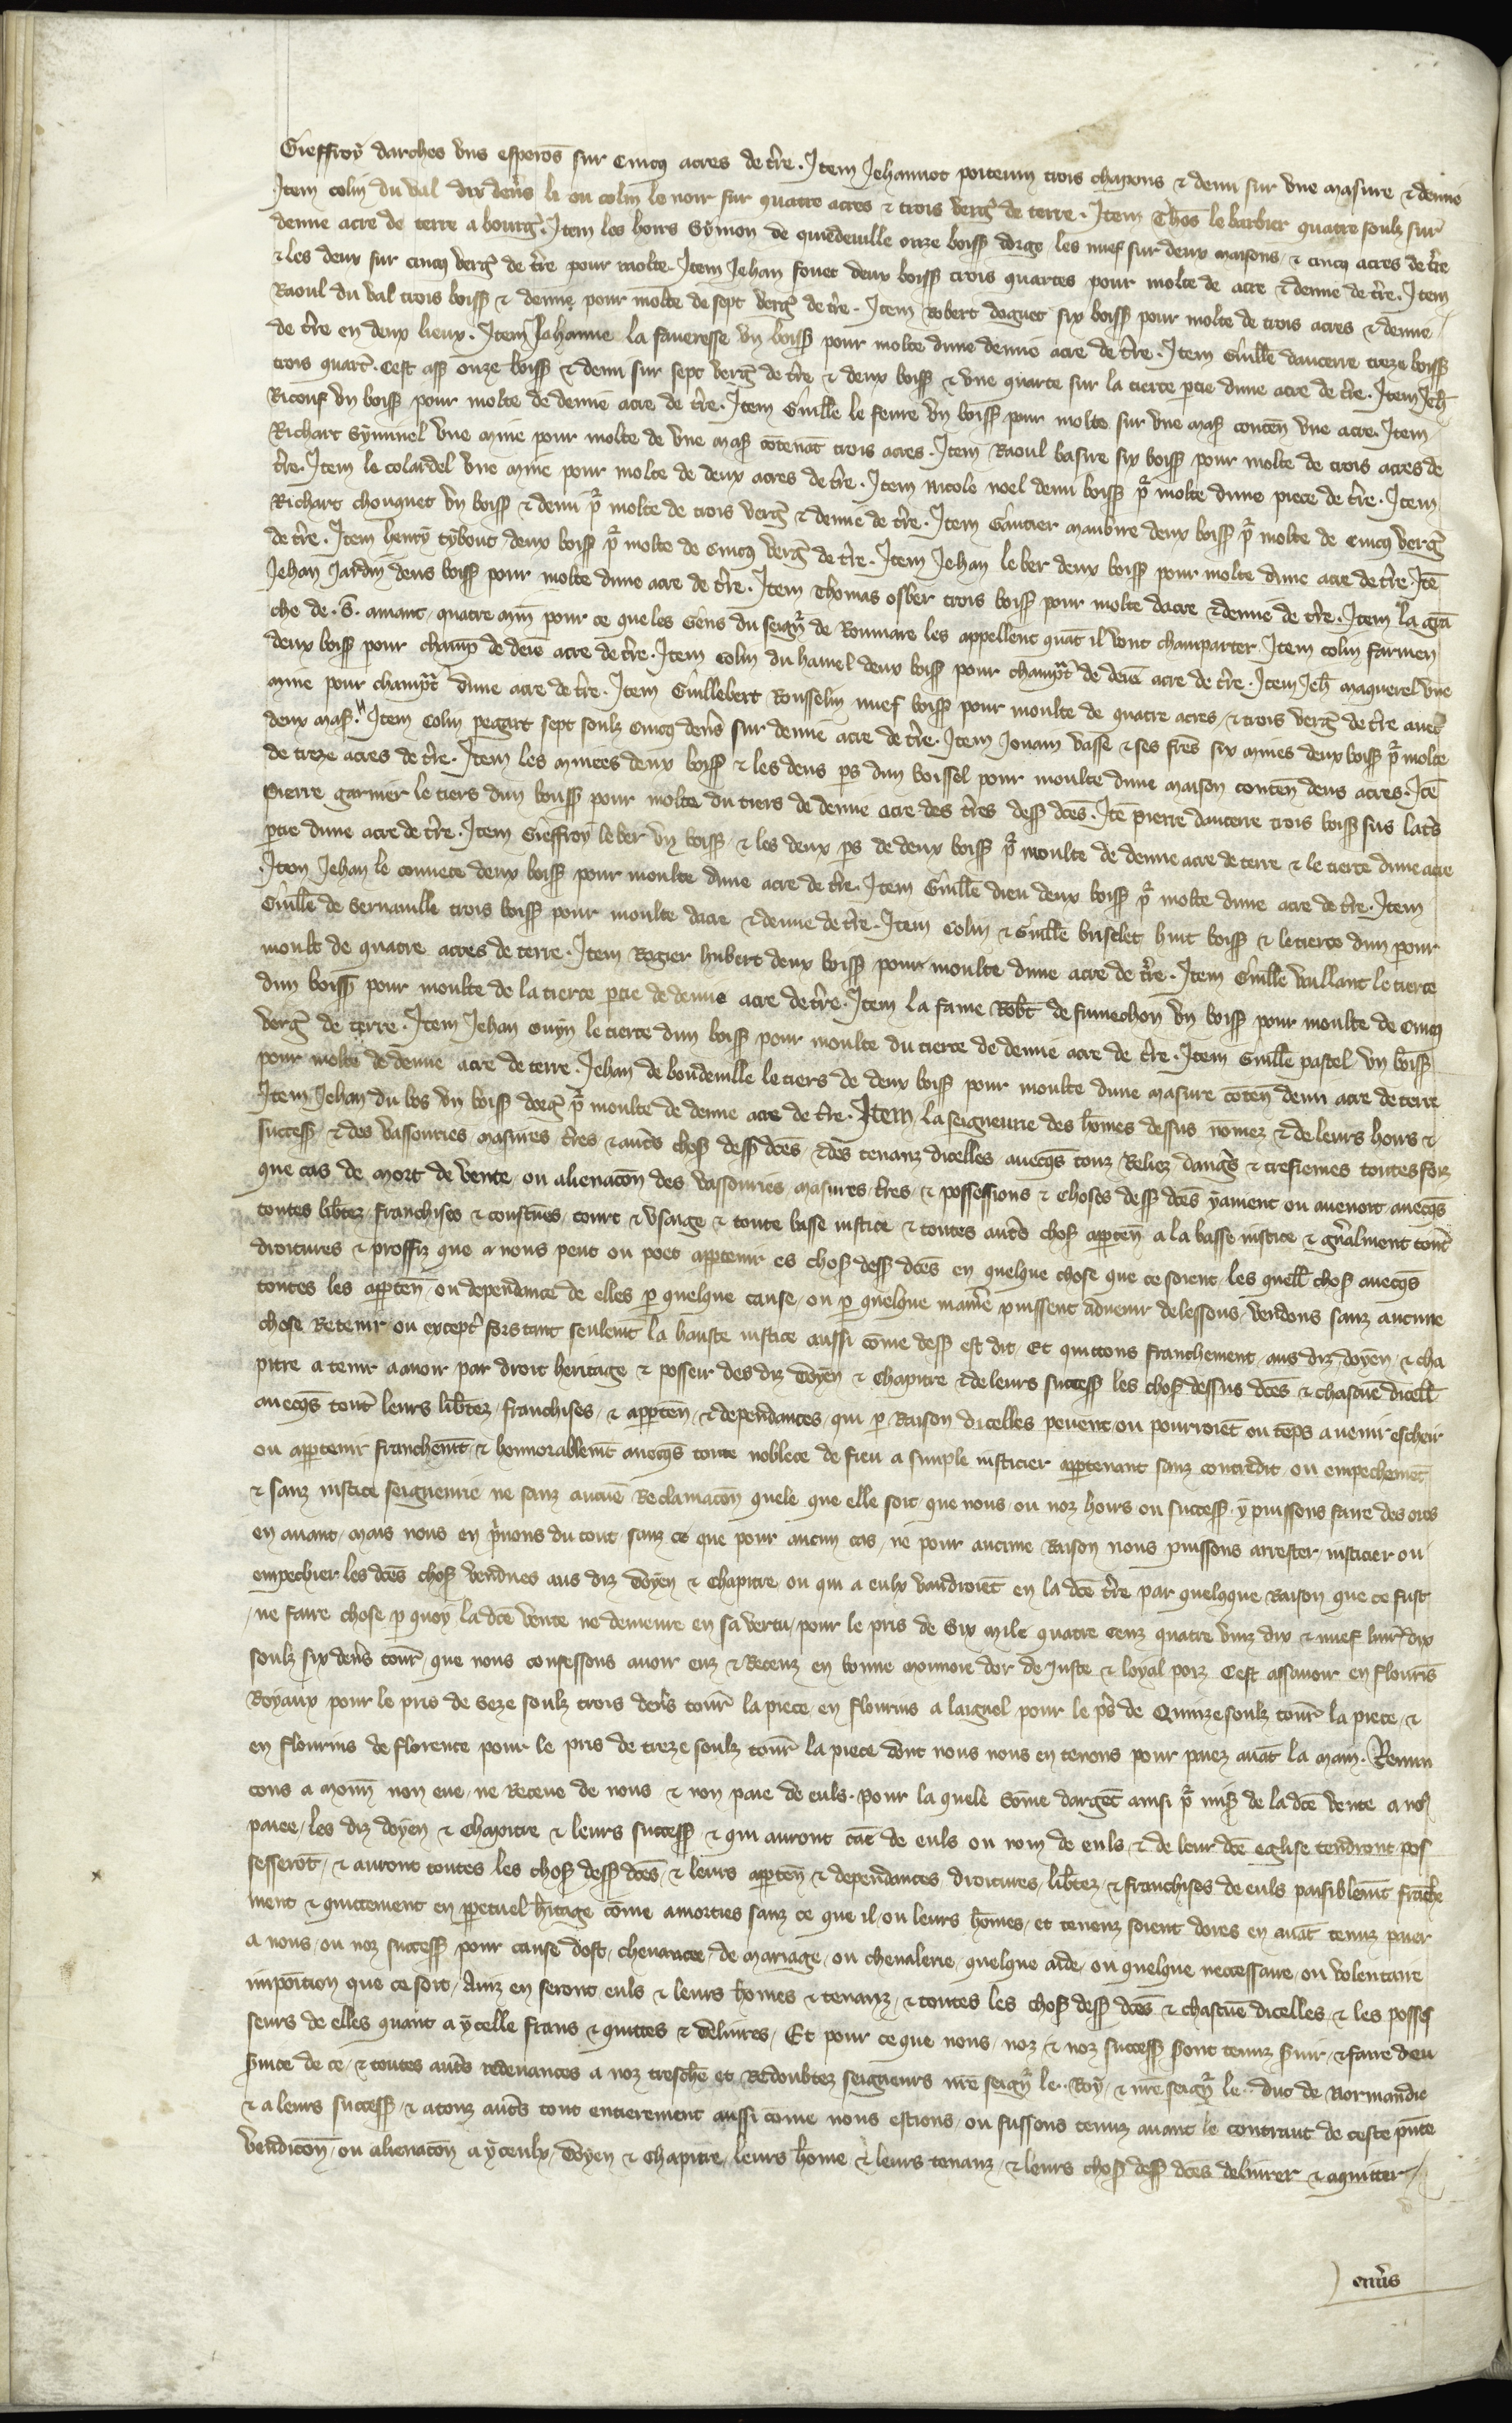 Gieffroy darches vns esperōs sur cincq acres de t̄re. Item Jehannot poitevin trois chapons & demi sur vne masure & demie
Item colin du val dix den̄s li ou colin le noir sur quatre acres & trois verg̃ de terre. Item Thōs le barbier quatre soulz sur
demie acre de terre a bourg̃. Item les hoirs Symon de quiedeuille onze boiss̄ dorge les nuef sur deux maisons & cincq acres de t̄re
& les deux sur cincq verg̃ de t̄re pour molte. Item Jehan fouet deux boiss̄ trois quartes pour molte de acre & demie de t̄re. Item
Raoul du val trois boiss̄ & demie pour molte de sept verg̃ de t̄re. Item Robert doguet six boiss̄ pour molte de trois acres & demie
de t̄re en deux lieux. Item Jehanne la faueresse vn boiss̄ pour molte dune demie acre de t̄re. Item Guill̄e dancerre treze boiss̄
trois quart̄. cest ass̄ onze boiss̄ & demi sur sept verg̃ de t̄re & deux boiss̄ & vne quarte sur la tierce p̄tie dune acre de t̄re. Item Jeh̄
Ricouf vn boiss̄ pour molte de demie acre de t̄re. Item Guill̄e le feure vn boiss̄ pour molte sur vne mas̄ conten̄ vne acre. Item
Richart Syminel vne mine pour molte de vne mas̄ cōtenāt trois acres. Item Raoul basire six boiss̄ pour molte de trois acres de
t̄re. Item le colardel vne mine pour molte de deux acres de t̄re. Item Nicole noel demi boiss̄ pr̄ molte dune piece de t̄re. Item
Richart chouquet vn boiss̄ & demi pr̄ molte de trois verg̃ & demie de t̄re. Item Gautier maubire deux boiss̄ pr̄ molte de cincq verg̃
de t̄re. Item henry tybout deux boiss̄ pr̄ molte de cincq verg̃ de t̄re. Item Jehan le ber deux boiss̄ pour molte dune acre de t̄re. Itē
Jehan Jardin deus boiss̄ pour molte dune acre de t̄re. Item Thomas osber trois boiss̄ pour molte dacre & demie de t̄re. Item la grā
che de .S. amant quatre min̄ pour ce que les gens du seign̄r de Roumare les appellent quāt il vont champarter. Item colin farmen
deux boiss̄ pour champ̄ de demē acre de t̄re. Item Colin du hamel deux boiss̄ pour champ̄t de demē acre de t̄re. Item Jeh̄ maquerel vne
mine pour champ̄t dune acre de t̄re. Item Guillebert Rousselin nuef boiss̄ pour moulte de quatre acres & trois verg̃ de t̄re auec
deux mas̄. Item Colin pegart sept soulz cincq den̄s sur demie acre de t̄re. Item Jouam vasse & ses frēs six mines deux boiss̄ pr̄ molte
de treze acres de t̄re. Item les mieies deux boiss̄ & les deus p̄s dun boissel pour moulte dune maison conten̄ deus acres. Itē
Pierre garnier le tiers dun boiss̄ pour molte du tiers de demie acre des t̄res dess̄ dc̄es. Itē pierre dancerre trois boiss̄ sus la t̄s
p̄tie dune acre de t̄re. Item Gieffroy le ber vn boiss̄ & les deux p̄s de deux boiss̄ pr̄ moulte de demie acre de terre & le tierce dune acre
Item Jehan le conuete deux boiss̄ pour moulte dune acre de t̄re. Item Guill̄e dieu deux boiss̄ pr̄ molte dune acre de t̄re. Item
Guill̄e de Sernauille trois boiss̄ pour moulte dacre & demie de t̄re. Item Colin & Guill̄e briselet huit boiss̄ & le tierce dun pour
moult de quatre acres de terre. Item Rogier hubert deux boiss̄ pour moulte dune acre de t̄re. Item Guill̄e vaillant le tierce
dun boiss̄ pour moulte de la tierce p̄tie de demie acre de t̄re. Item la fame Rob̄t de fumechon vn boiss̄ pour moulte de cincq
verg̃ de terre. Item Jehan ouyn le tierce dun boiss̄ pour moulte du tierce de demie acre de t̄re. Item Guill̄e pastel vn boiss̄
pour molte de demie acre de terre. Jehan de boudeuille le tiers de deux boiss̄ pour moulte dune masure cōten̄ demi acre de terre
Item Jehan du bos vn boiss̄ dorg̃ pr̄ moulte de demie acre de t̄re. Item la seigneurie des hōmes dessus nōmez & de leurs hoirs &
success̄ & des vassouries masures t̄res & aut̄s chos̄ dess̄ dc̄es & des tenanz dicelles auecq̄s touz Reliez dang̃s & tresiemes toutesfoiz
que cas de mort de vente ou alienacōn des vassouries masures t̄res & possessions & choses dess̄ dc̄es y auient ou auenoit auecq̄s
toutes lib̄tez franchises & coustum̄es court & vsaige & toute basse iustice & toutes aut̄s chos̄ appten̄ a la basse iustice & gn̄alment tout̄
droitures & proffiz que a nous peut ou poet apptenir es chos̄ dess̄ dc̄es en quelque chose que ce soient les quell̄ chos̄ auecq̄s
toutes les appten̄ ou dependance de elles p̄ quelque cause ou p̄ quelque manie᷑e puissent aduenir delessons vendons sanz aucune
chose Retenir ou except̄ fors tant seulem̄t la hauste iustice aussi cōme dess̄ est dit Et quittons franchement aus diz doyen & cha
pitre a tenir a auoir par droit heritage & posseir des diz doyen & Chapitre & de leurs success̄ les chos̄ dessus dc̄es & chascūe dicell̄
auecq̄s tout̄ leurs lib̄tez franchises & appten̄ & dependances qui p̄ Raison dicelles peuent ou pourroiēt ou tēps auenir escheir
ou apptenir franchem̄t & honnorablem̄t auecq̄s toute noblece de fieu a simple iusticier apptenant sanz contredit ou empechemēt
& sanz iustice seigneurie ne sanz aucūe Reclamacōn quele que elle soit que nous ou noz hoirs ou success̄ y puissons faire des ores
en auant mais nous en p̄uons du tout sanz ce que pour aucun cas ne pour aucune Raison nous puissons arrester iusticier ou
empechier les dc̄es chos̄ vendues aus diz doyen & Chapitre ou qui a eulx vandroiēt en la dc̄e t̄re par quelqque Raison que ce fust
ne faire chose p̄ quoy la dc̄e vente ne demeure en sa vertu pour le pris de Six mile quatre cenz quatre vinz dix & nuef liur̄ dix
soulz six den̄s tour̄ que nous confessons auoir euz & Receuz en bonne monnoie dor de Juste & loyal poiz Cest assauoir en flourīs
Royaux pour le pris de Seze soulz trois den̄s tour̄ la piece en flourins a laignel pour le p̄s de Quinze soulz tour̄ la piece &
en flourins de florence pour le pris de treze soulz tour̄ la piece dont nous nous en tenons pour paiez auāt la main. Renun
cons a monn̄ non eue ne Receue de nous & non paie de euls. pour la quele Sōme dargēt ainsi pr̄ mis̄ de la dc̄e vente a no᷒
paiee les diz doyen & Chapitre & leurs success̄ & qui auront cāe de euls ou nom de euls & de leur dc̄e eglise tendront pos
sesserōt & auront toutes les chos̄ dess̄ dc̄es & leurs appten̄ & dependances droitures lib̄tez & franchises de euls paisiblem̄t frāche
ment & quittement en p̄petuel h̄itage cōme amorties sanz ce que il ou leurs hōmes et tenenz soient dores en auāt tenuz paier
a nous ou noz success̄ pour cause dost cheuauce de mariage ou cheualerie quelque aide ou quelque neccessaire ou volentaire
impoition que ce soit Ainz en seront euls & leurs hōmes & tenanz & toutes les chos̄ dess̄ dc̄es & chascūe dicelles & les posses
seurs de elles quant a ycelle frans & quittes & deliures Et pour ce que nous noz & noz success̄ sont tenuz s̄uir & faire deu
s̄uice de ce & toutes aut̄s redeuances a noz treschē et Redoubtez seigneurs nr̄e seign̄r le Roy & nr̄e seign̄r le duc de Normandie
& a leurs success̄ & a touz aut̄s tout entierement aussi cōme nous estions ou fussons tenuz auant le contraut de ceste p̄nte
vendicōn ou alienacōn a yceulx doyen & Chapitre leurs hōme & leurs tenanz & leurs chos̄ dess̄ dc̄es deliurer & aquitter
enu̇s